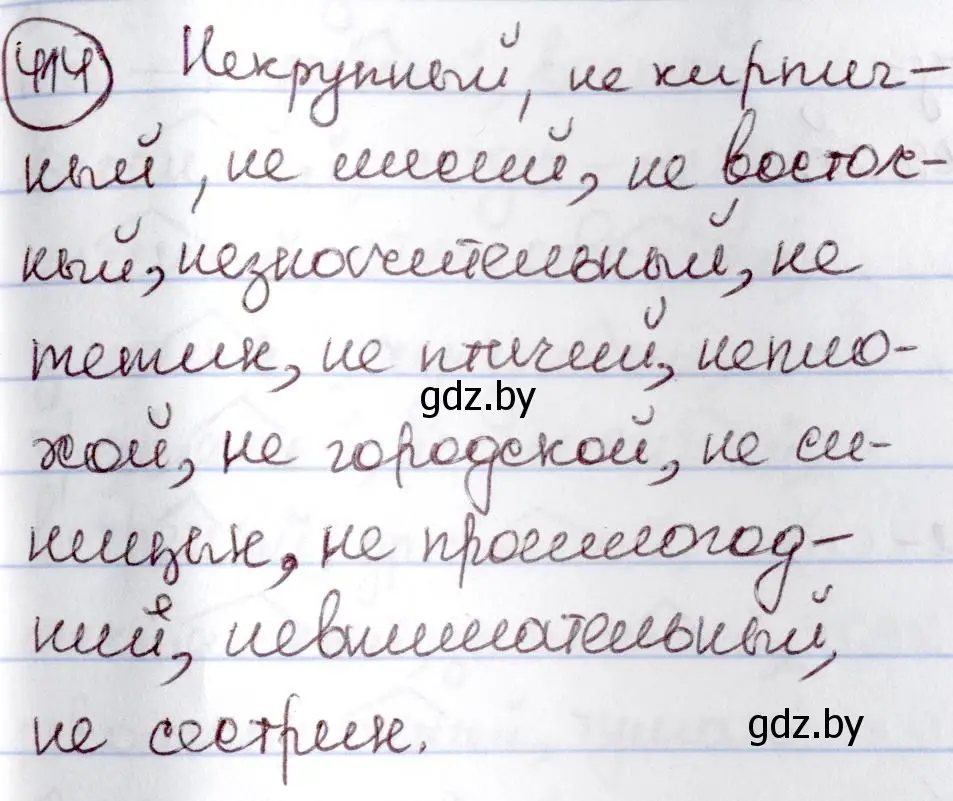 414 Некрупный, не кирпич-
ный, не лисий, не восточ-
ный, незначительный, не
тетин, не птичий, непло-
gdz.by
хой, не городской, не си-
ницын, не прошлогод-
ний, невнимательный,
не сестрин.
gdz.by